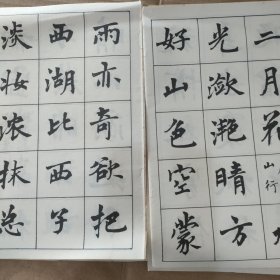 二月花
山行
光潋滟晴方
好山色空蒙
雨亦奇欲把
西湖比西子
淡妆浓抹总